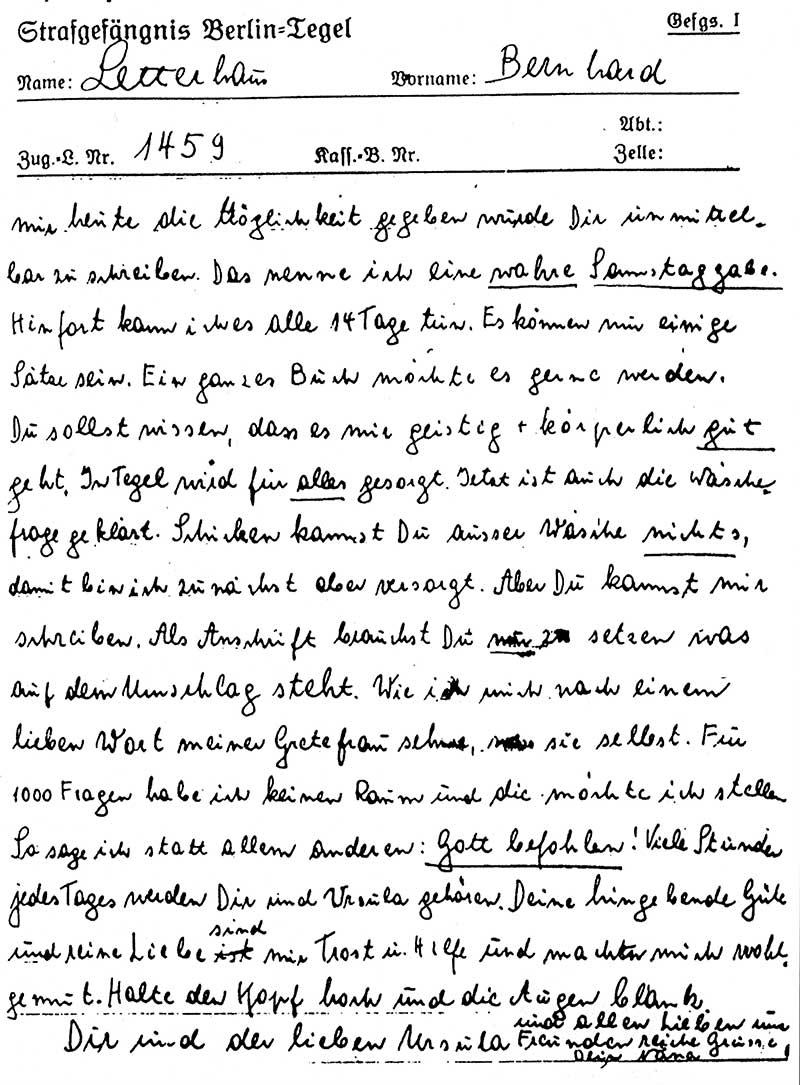 Strafgefängnis Berlin-Tegel
Gefgs. I
Name: Letterhaus Vorname: Bernhard
Abt.:
Zug.-L. Nr. 1459 Kass.-B. Nr. Zelle:
mir heute die Möglichkeit gegeben wurde Dir unmittel-
bar zu schreiben. Das nenne ich eine wahre Samstaggabe.
Hinfort kann ich es alle 14 Tage tun. Es können nur einige
Sätze sein. Ein ganzes Buch möchte es gerne werden.
Du sollst wissen, dass es mir geistig + körperlich gut
geht. In Tegel wird für alles gesorgt. Jetzt ist auch die Wäsche-
frage geklärt. Schicken kannst Du ausser Wäsche nichts,
damit bin ich zunächst aber versorgt. Aber Du kannst mir
schreiben. Als Anschrift brauchst Du nur zu setzen was
auf dem Umschlag steht. Wie ich mich nach einem
lieben Wort meiner Grete frau sehne, sie selbst. Für
1000 Fragen habe ich keinen Raum und die möchte ich stellen
So sage ich statt allem anderen: Gott befohlen! Viele Stunden
jedes Tages werden Dir und Ursula gehören. Deine hingebende Güte
und reine Liebe sind mir Trost u. Hilfe und machen mich wohl-
gemut. Halte den Kopf hoch und die Augen blank.
Dir und der lieben Ursula und allen Lieben und
Freunden reiche Grüsse,
Dein